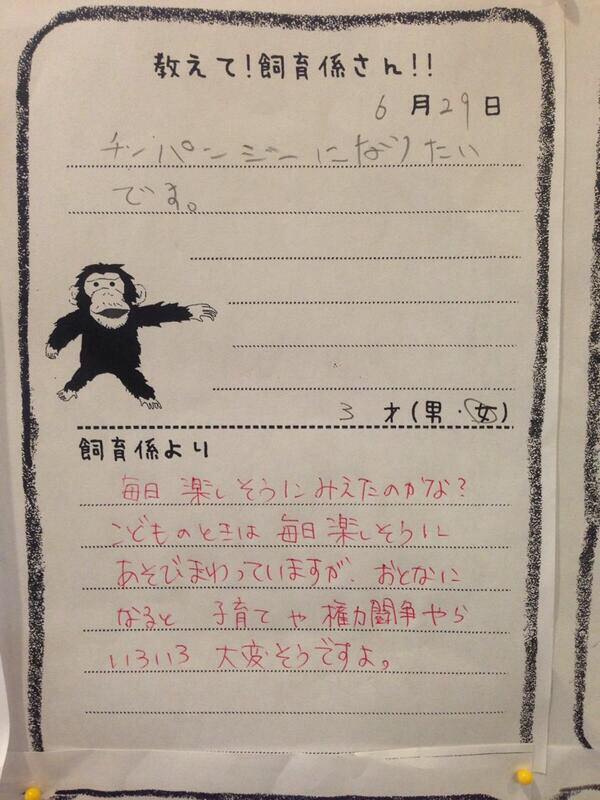 教えて!飼育係さん!!
6月29日
チンパンジーになりたい
です。
3才(男・女)
飼育係より
毎日 楽しそうにみえたのかな?
こどものときは 毎日楽しそうに
あそびまわっていますが、おとなに
なると 子育てや 権力闘争やら
いろいろ 大変そうですよ。